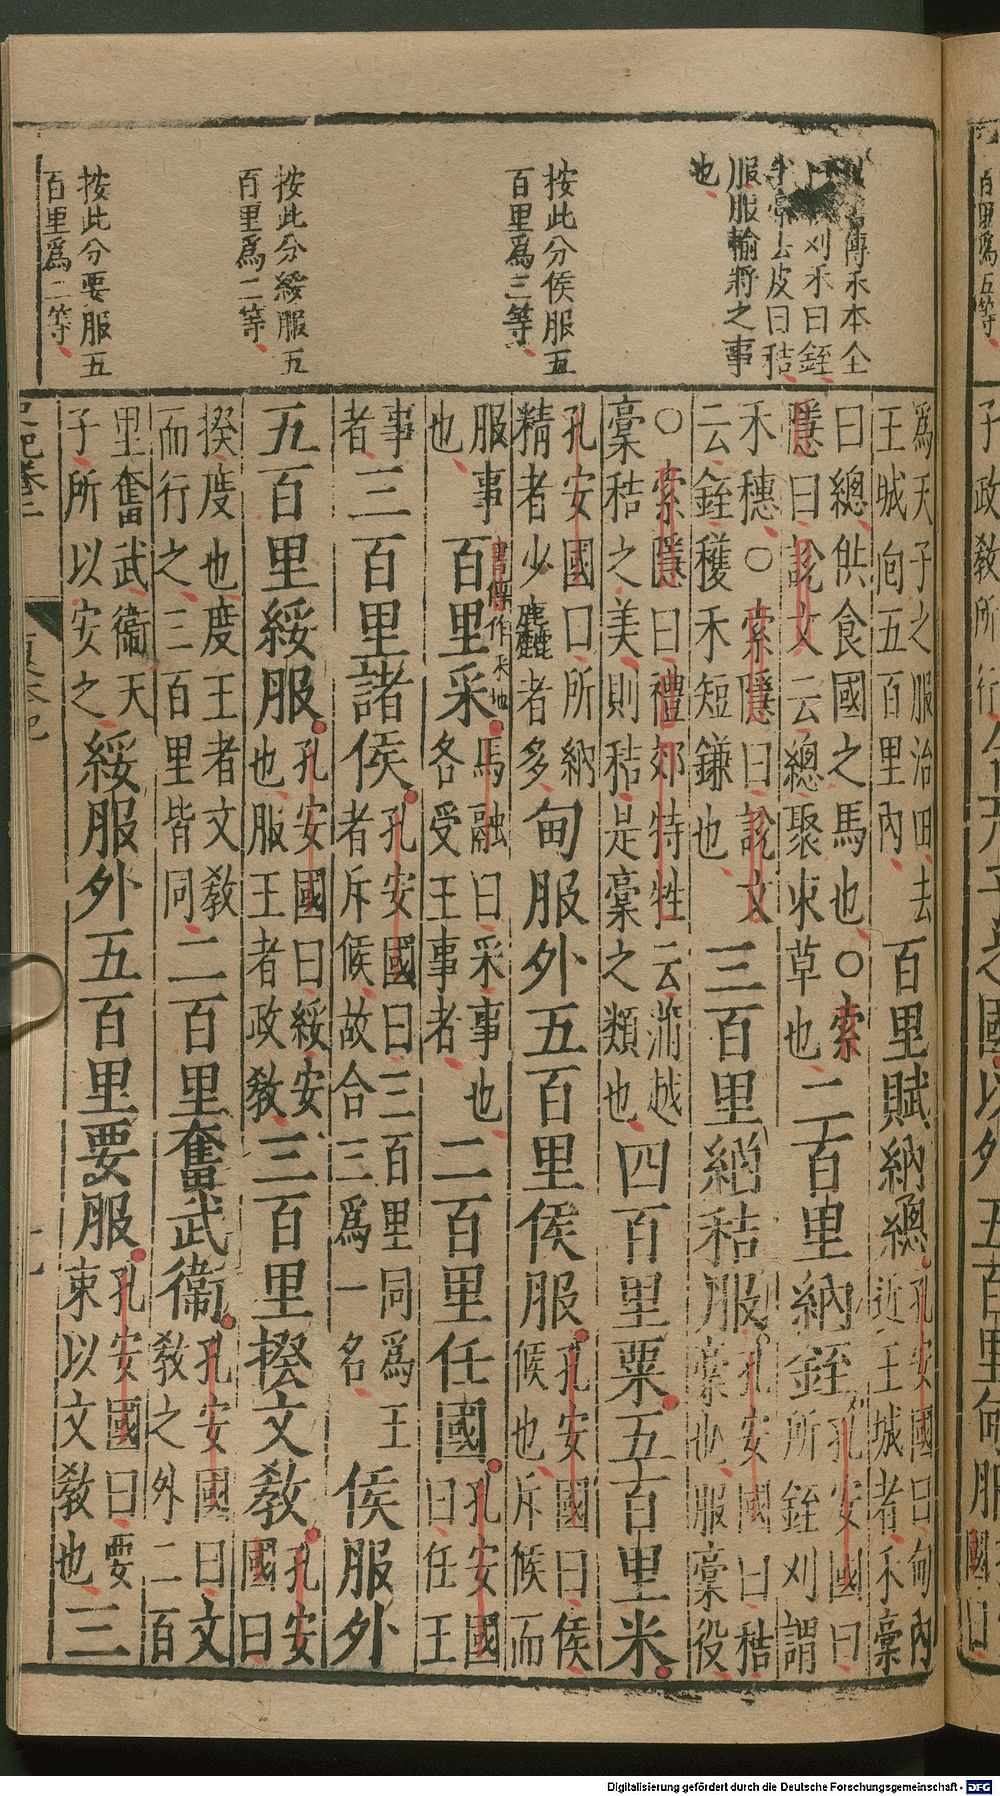 傳禾本全
刈禾曰銍
去皮曰秸
服服輸將之事
也
按此分侯服五
百里爲三等
按此分綏服五
百里爲二等
按此分要服五
百里爲二等
爲天子之服治田去
王城面五百里內
百里賦納總
孔安國曰甸內
近王城者禾稾
曰總供食國之馬也○索
隱曰說文云總聚束草也
二百里納銍
孔安國曰
所銍刈謂
禾穗○索隱曰說文
云銍穫禾短鎌也
三百里納秸服
孔安國曰秸
稾也服稾役
○索隱曰禮郊特牲云蒲越
稾秸之美則秸是稾之類也
四百里粟五百里米
孔安國曰所納
精者少麤者多
甸服外五百里侯服
孔安國曰侯
候也斥候而
服事
也
百里采
書傳作采地
馬融曰采事也
各受王事者
二百里任國
孔安國
曰任王
事
者
三百里諸侯
孔安國曰三百里同爲王
者斥候故合三爲一名
侯服外
五百里綏服
孔安國曰綏安
也服王者政教
三百里揆文教
孔安
國曰
揆度也度王者文教
而行之三百里皆同
二百里奮武衞
孔安國曰文
教之外二百
里奮武衞天
子所以安之
綏服外五百里要服
孔安國曰要
束以文教也
三
Digitalisierung gefördert durch die Deutsche Forschungsgemeinschaft - DFG